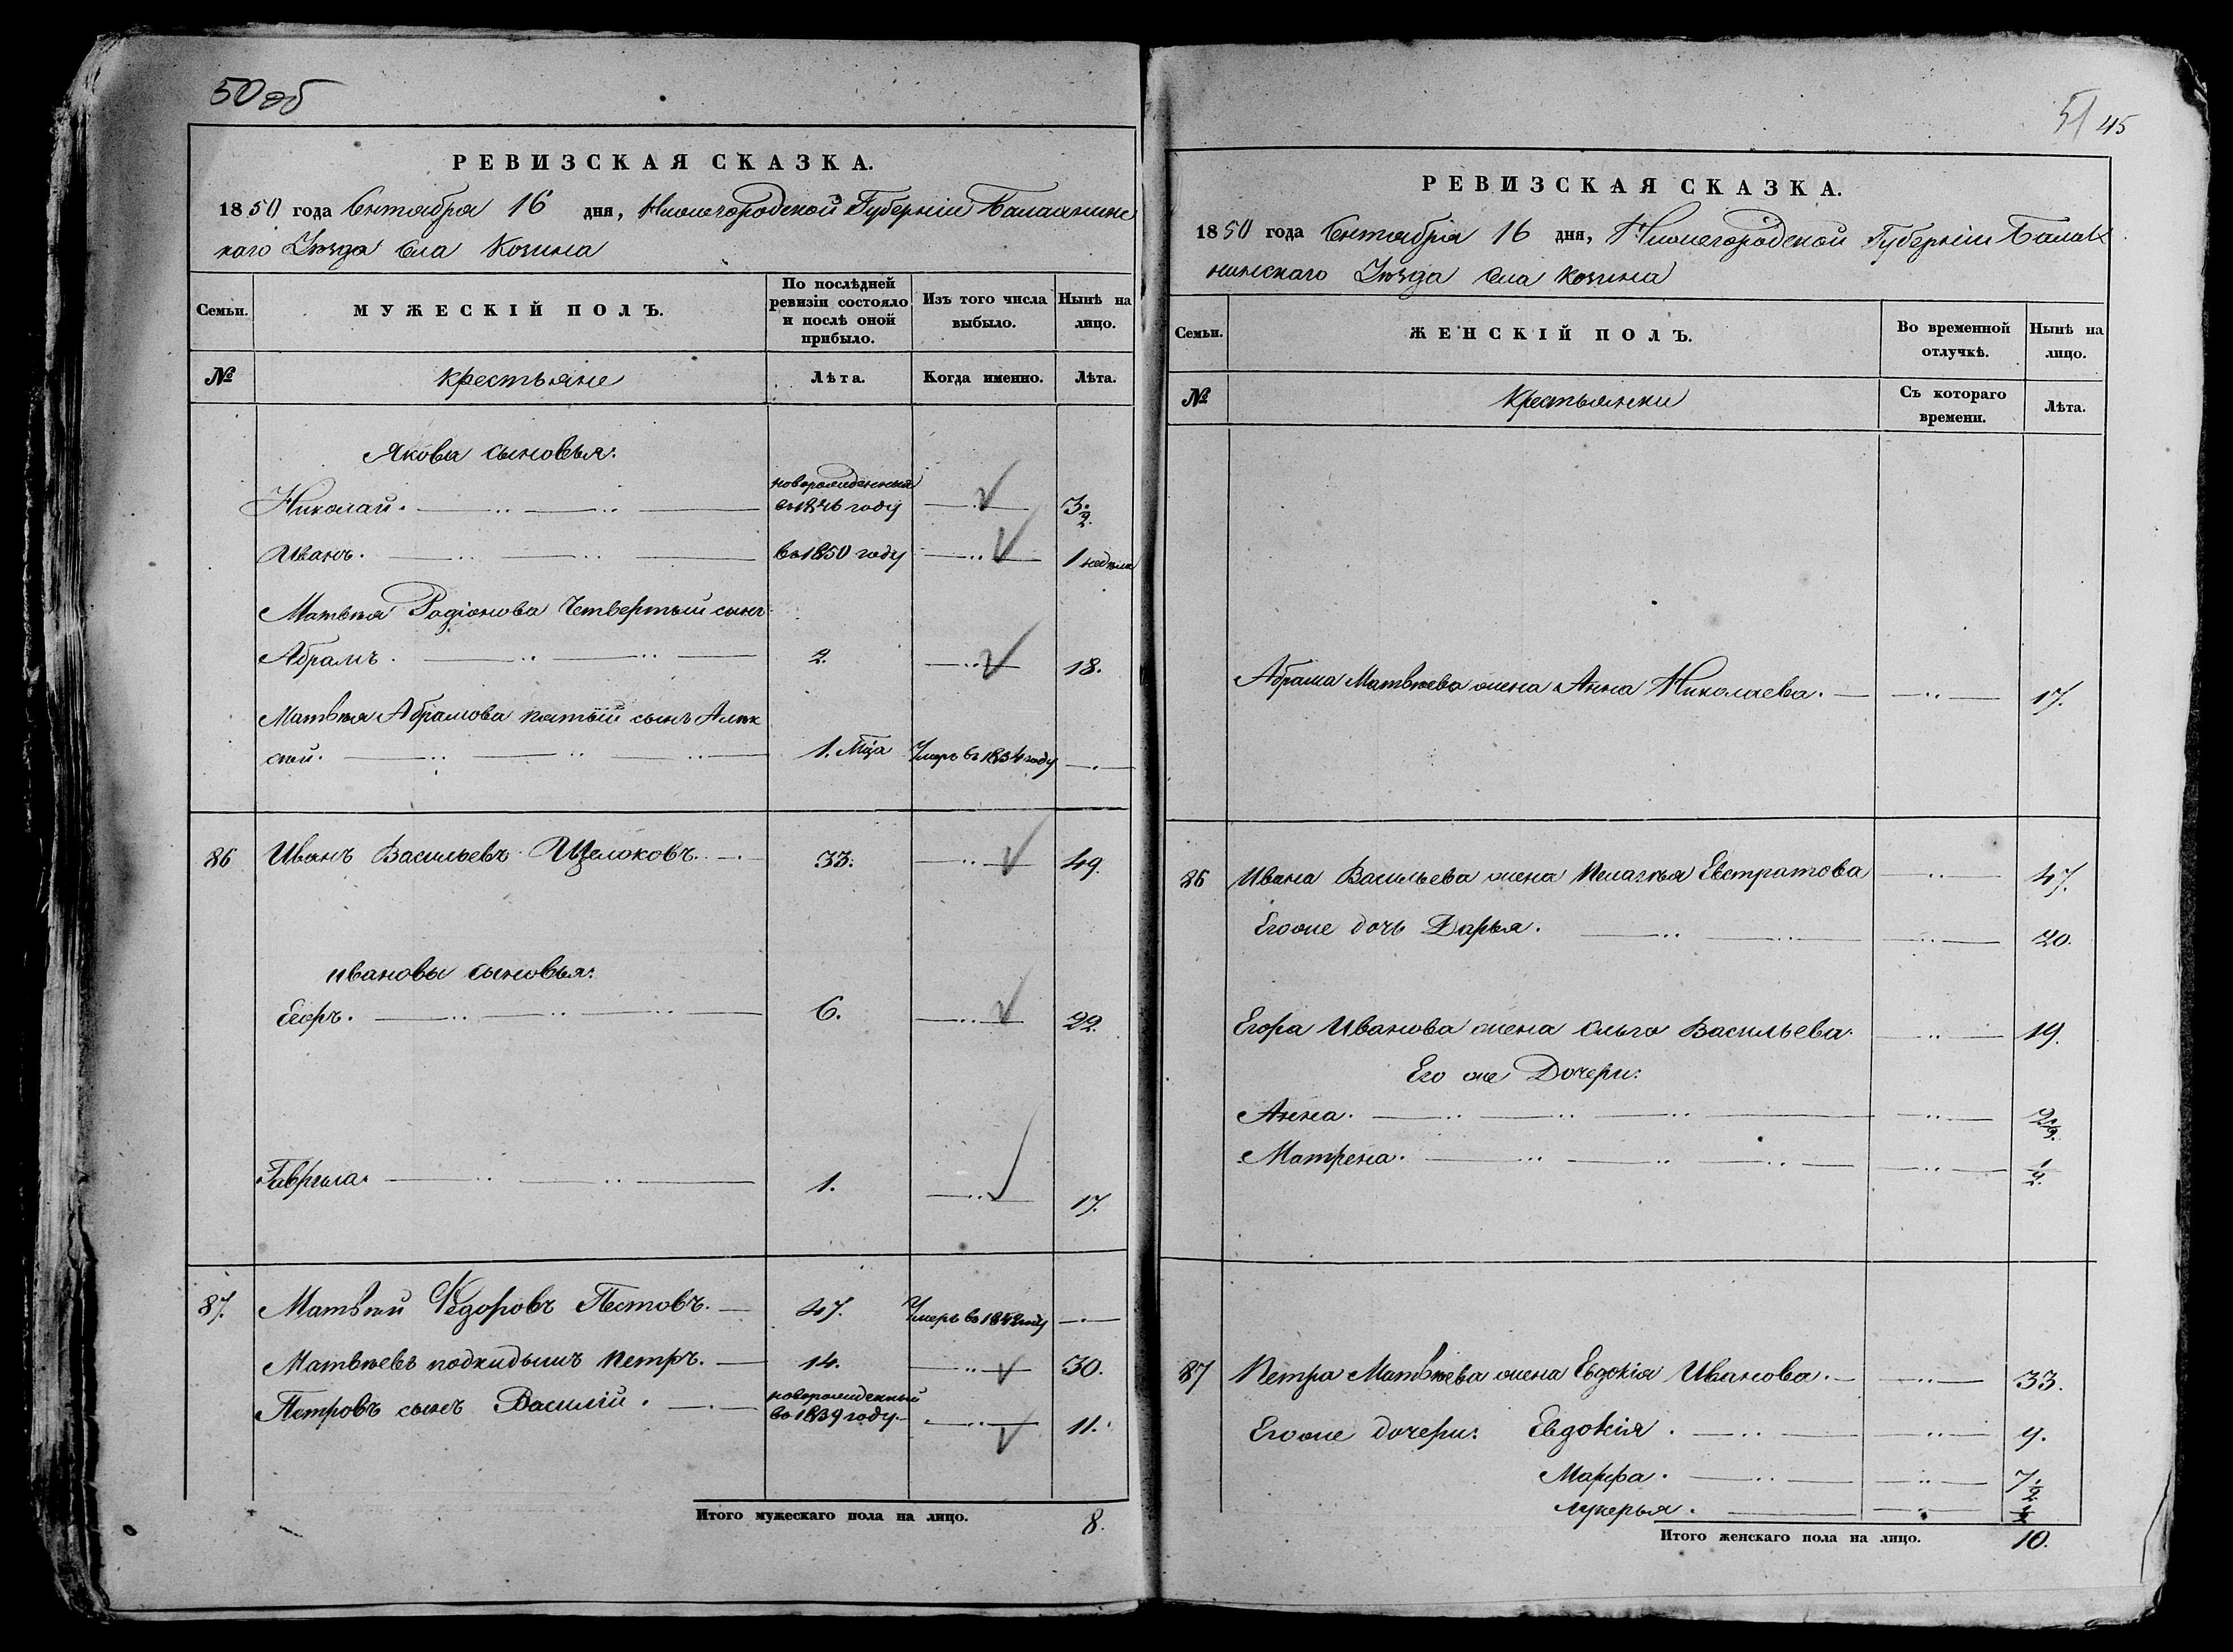 50 об
РЕВИЗСКАЯ СКАЗКА.
1850 года Сентября 16 дня, Нижегородской Губерніи Балахнинс
каго Уѣзда Села Козина
Семьи.
МУЖЕСКІЙ ПОЛЪ.
По послѣдней
ревизіи состояло
и послѣ оной
прибыло.
Изъ того числа
выбыло.
Нынѣ на
лицо.
№
Крестьяне
Лѣта.
Когда именно.
Лѣта.
Якова сыновья:
Николай. новорожденный
въ 1846 году 3 1/2.
Иванъ. въ 1850 году 1 недѣля
Матвѣя Радіонова Четвертый сынъ
Абрамъ. 2. 18.
Матвѣя Абрамова пятый сынъ Алек
сѣй. 1. Мца Умеръ въ 1834 году
86 Иванъ Васильевъ Щелоковъ. 33. 49.
Ивановы сыновья:
Егоръ. 6. 22.
Гаврила. 1. 17.
87. Матвѣй Ѳедоровъ Пестовъ. 47. Умеръ въ 1842 году
Матвѣевъ подкидышъ Петръ. 14. 30.
Петровъ сынъ Василій. новорожденный
въ 1839 году. 11.
Итого мужескаго пола на лицо. 8.
51 45
РЕВИЗСКАЯ СКАЗКА.
1850 года Сентября 16 дня, Нижегородской Губерніи Балах
нинскаго Уѣзда Села Козина
Семьи.
ЖЕНСКІЙ ПОЛЪ.
Во временной
отлучкѣ.
Нынѣ на
лицо.
№
Крестьянки
Съ котораго
времени.
Лѣта.
Абрама Матвѣева жена Анна Николаева. 17.
86 Ивана Васильева жена Пелагѣя Евстратова 47.
Егоже дочь Дарья. 20.
Егора Иванова жена Ольга Васильева. 19.
Его же Дочери:
Анна. 2 1/2.
Матрена. 1/2.
87 Петра Матвѣева жена Евдокія Иванова. 33.
Егоже дочери: Евдокія. 9.
Марфа. 7 1/2
Лукерья. 1/2
Итого женскаго пола на лицо. 10.